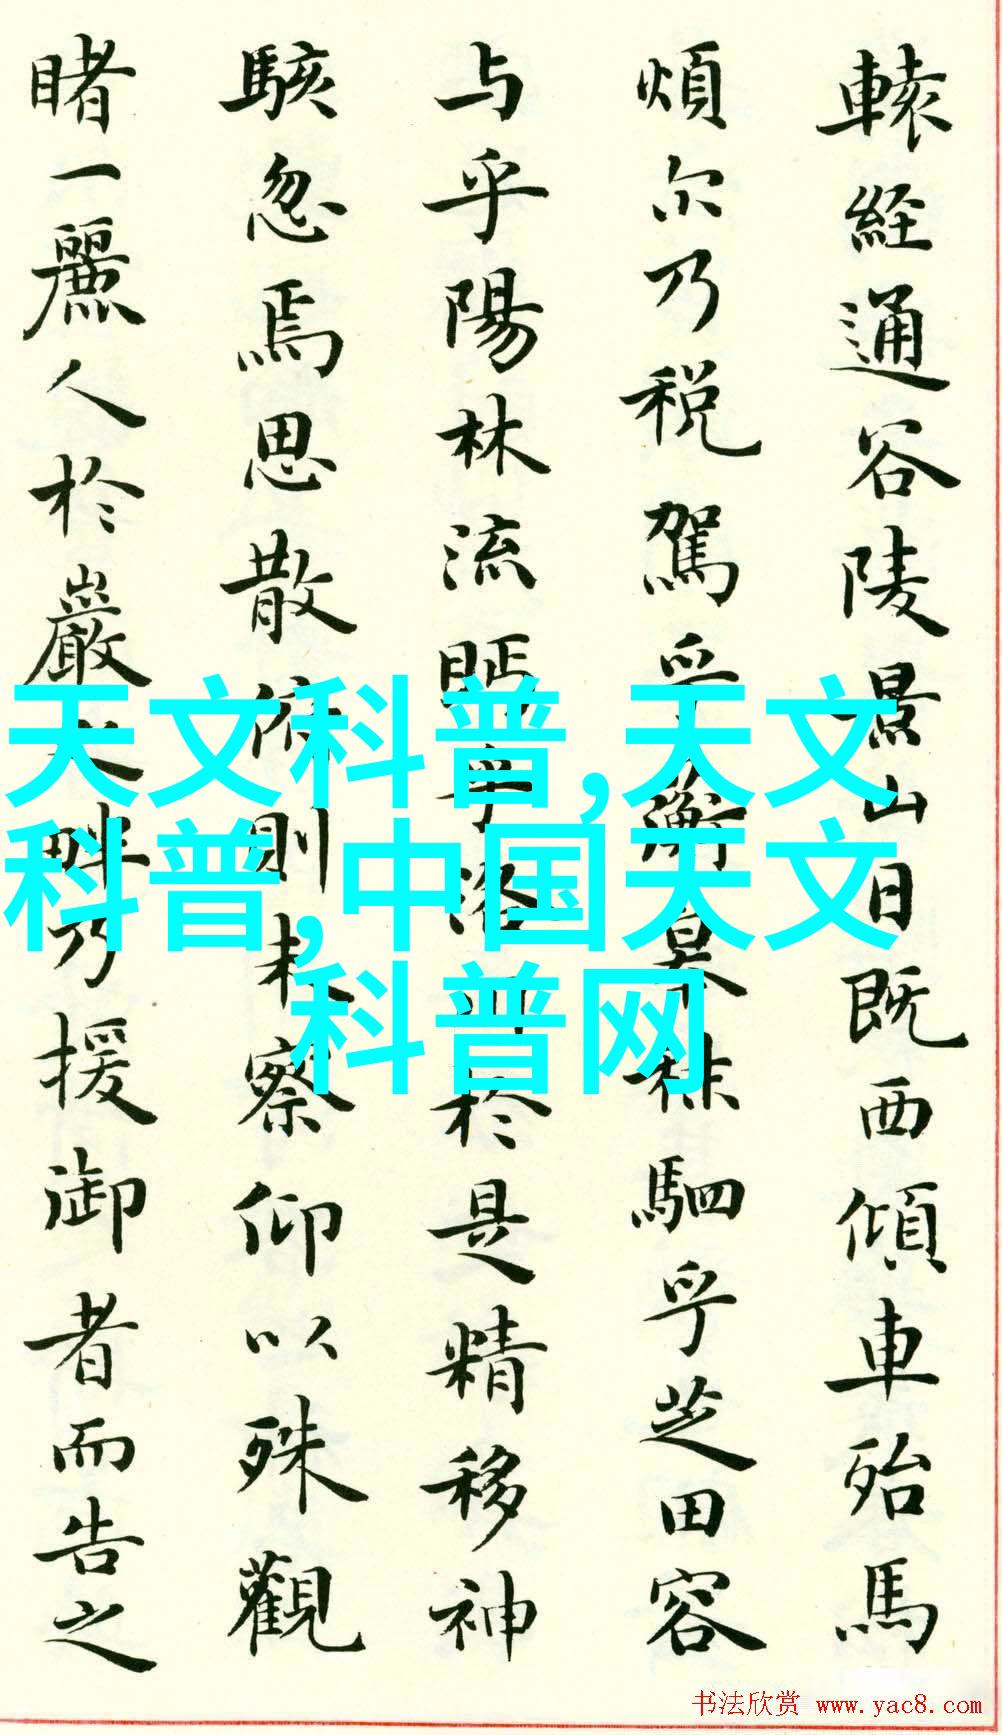 轅経通谷陵景山日既西傾車殆馬
煩尔乃税駕乎蘅皋秣駟乎芝田容
与乎陽林流眄乎洛川於是精移神
駭忽焉思散俯則未察仰以殊觀
睹一麗人於巖之畔乃援御者而告之
天文科普,天文
科普,中国天文
科普网
书法欣赏 www.yac8.com